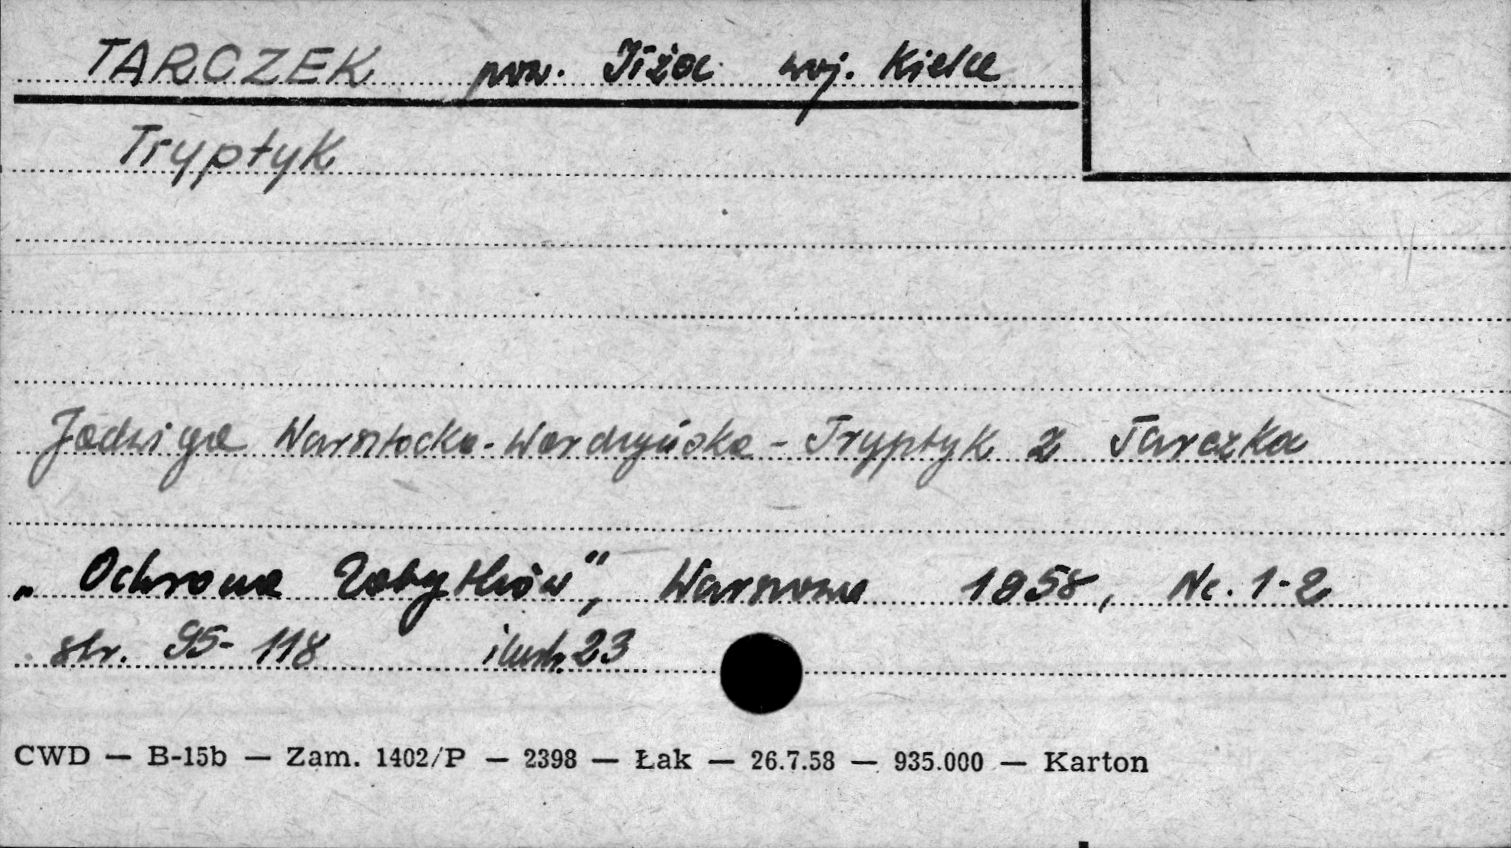 TARCZEK pow. Iłża woj. Kielce
Tryptyk
Jadwiga Warsztocka-Wardzyńska - Tryptyk z Tarczka
„Ochrona Zabytków", Warszawa 1958, Nr. 1-2
str. 95-118 ilustr. 23
CWD — B-15b — Zam. 1402/P — 2398 — Łak — 26.7.58 — 935.000 — Karton